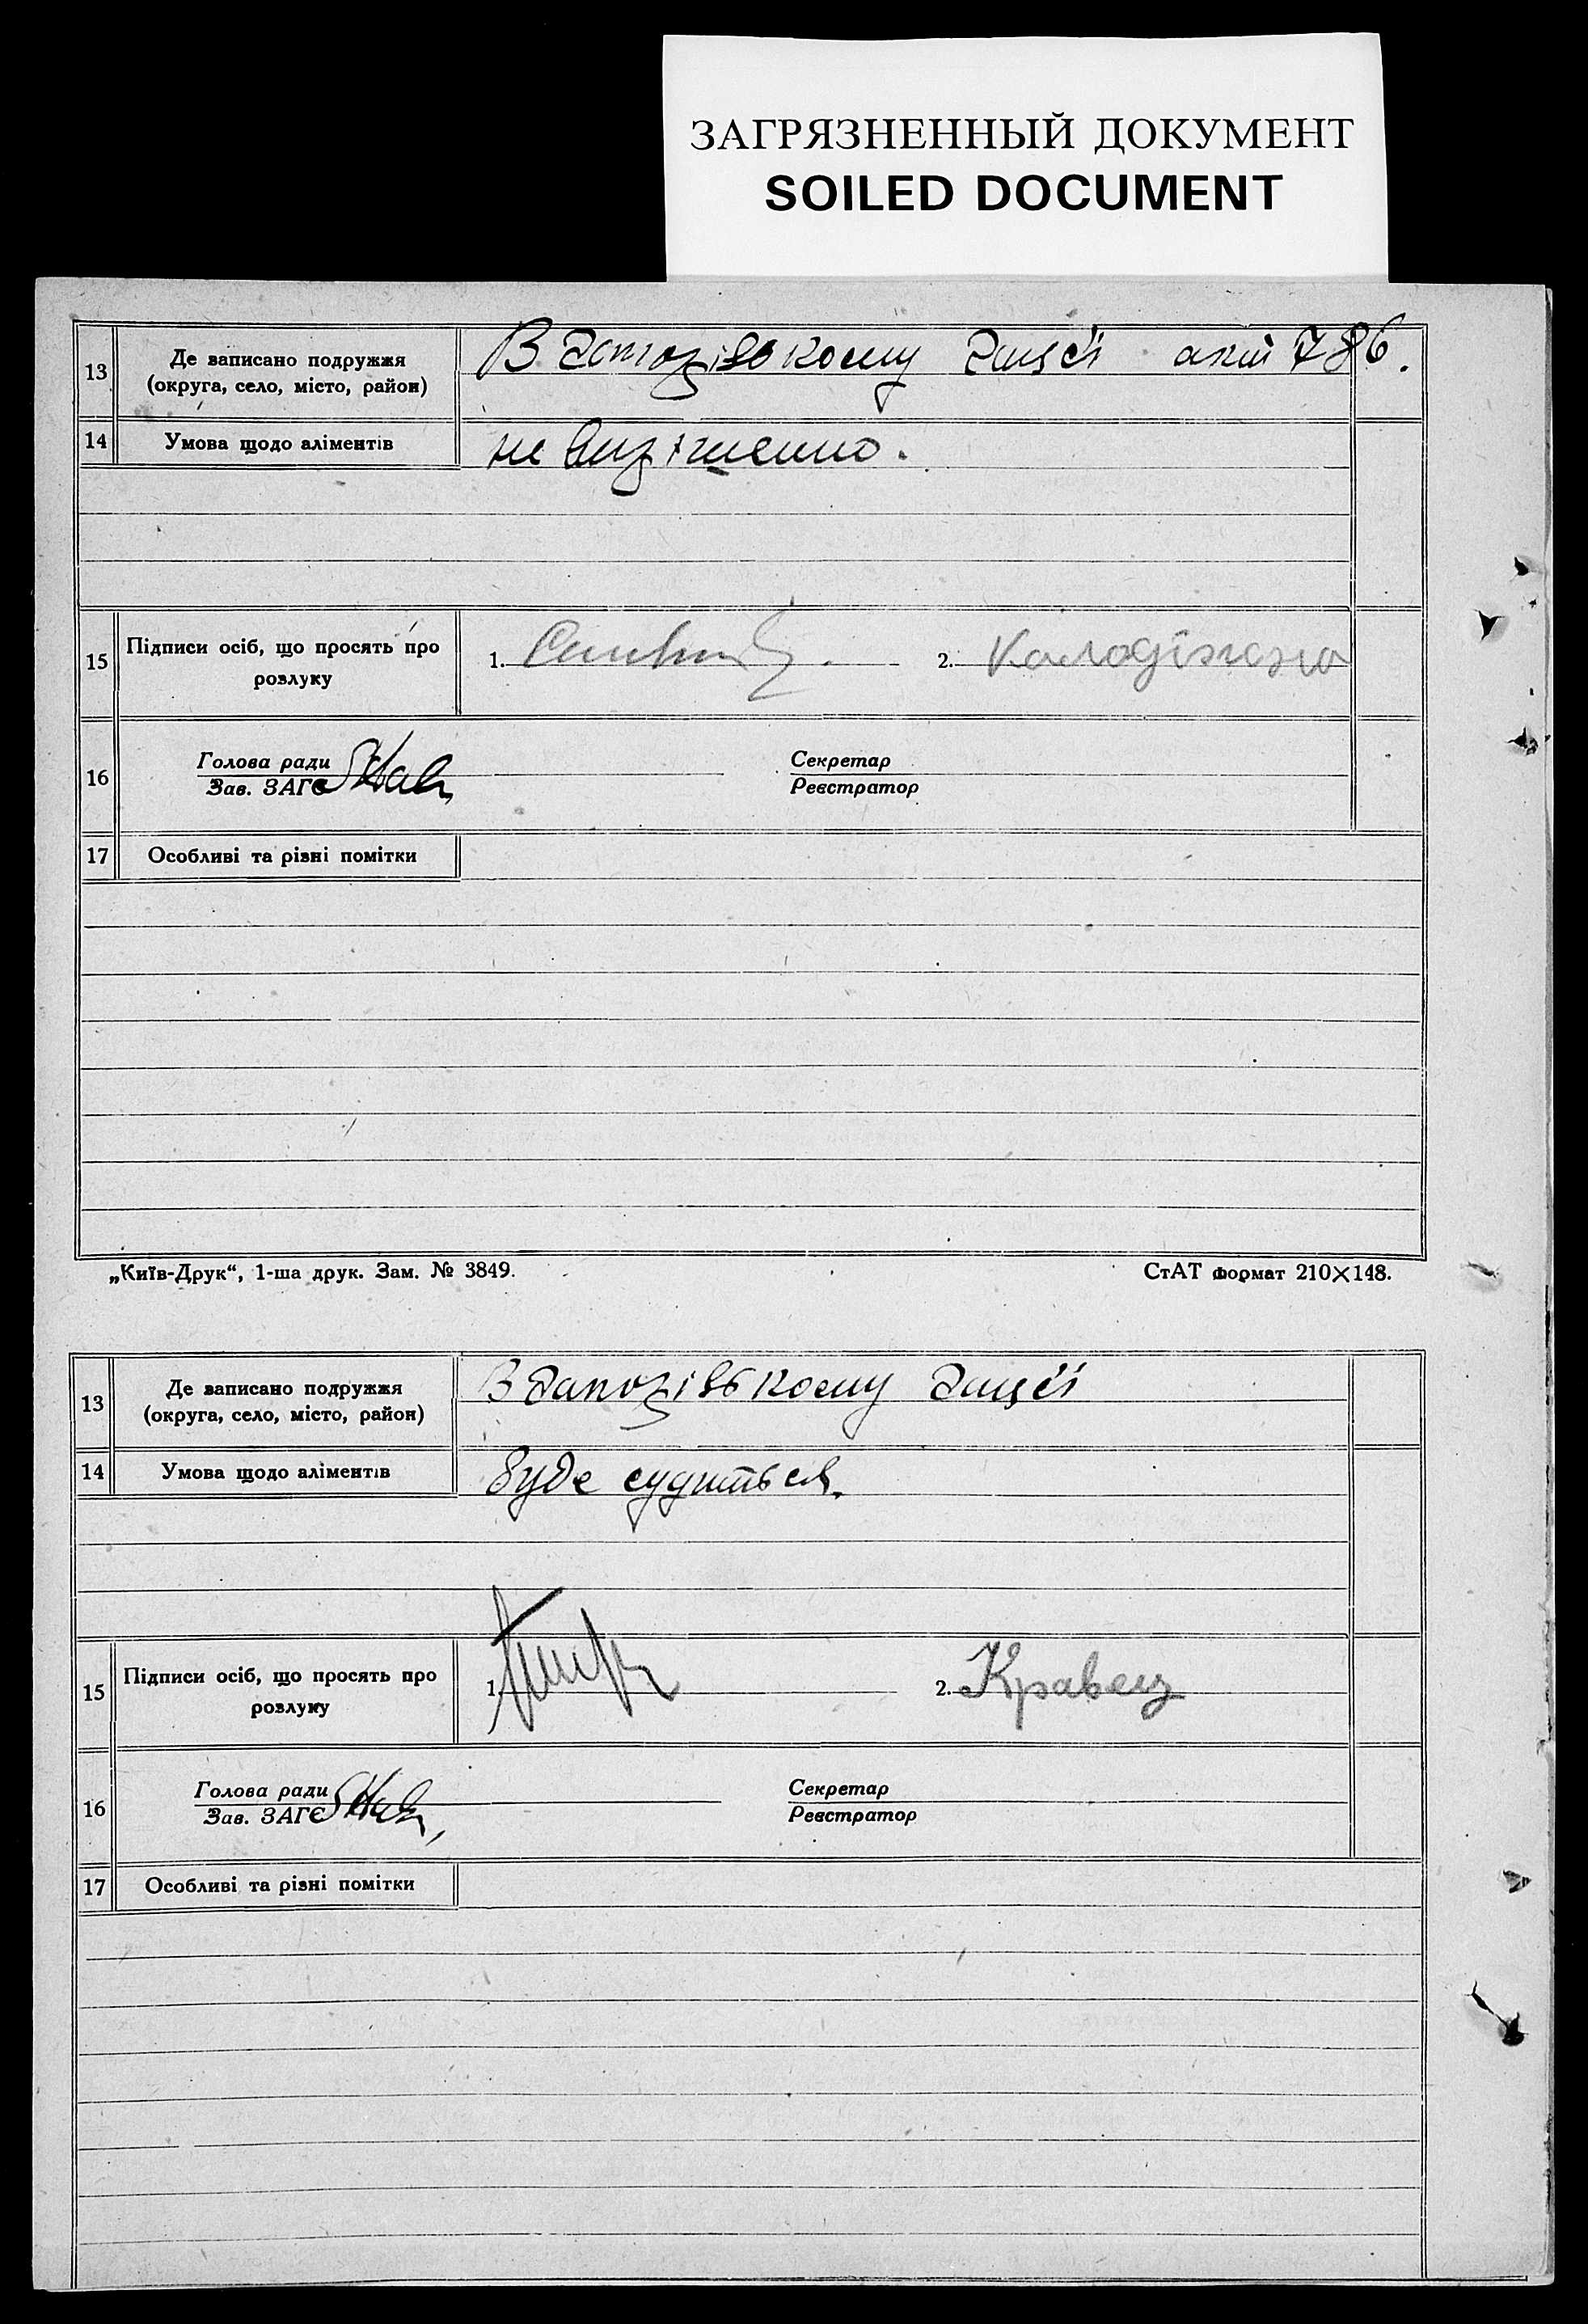 ЗАГРЯЗНЕННЫЙ ДОКУМЕНТ
SOILED DOCUMENT
13 Де записано подружжя (округа, село, місто, район) В Запорізькому Загсі акт 786.
14 Умова щодо аліментів не вирішенно.
15 Підписи осіб, що просять про розлуку 1. 2.
16 Голова ради Секретар
Зав. ЗАГС Реєстратор
17 Особливі та різні помітки
„Київ-Друк“, 1-ша друк. Зам. № 3849. СтАТ формат 210×148.
13 Де записано подружжя (округа, село, місто, район) В Запорізькому Загсі
14 Умова щодо аліментів буде судиться.
15 Підписи осіб, що просять про розлуку 1. 2. Кравец
16 Голова ради Секретар
Зав. ЗАГС Реєстратор
17 Особливі та різні помітки